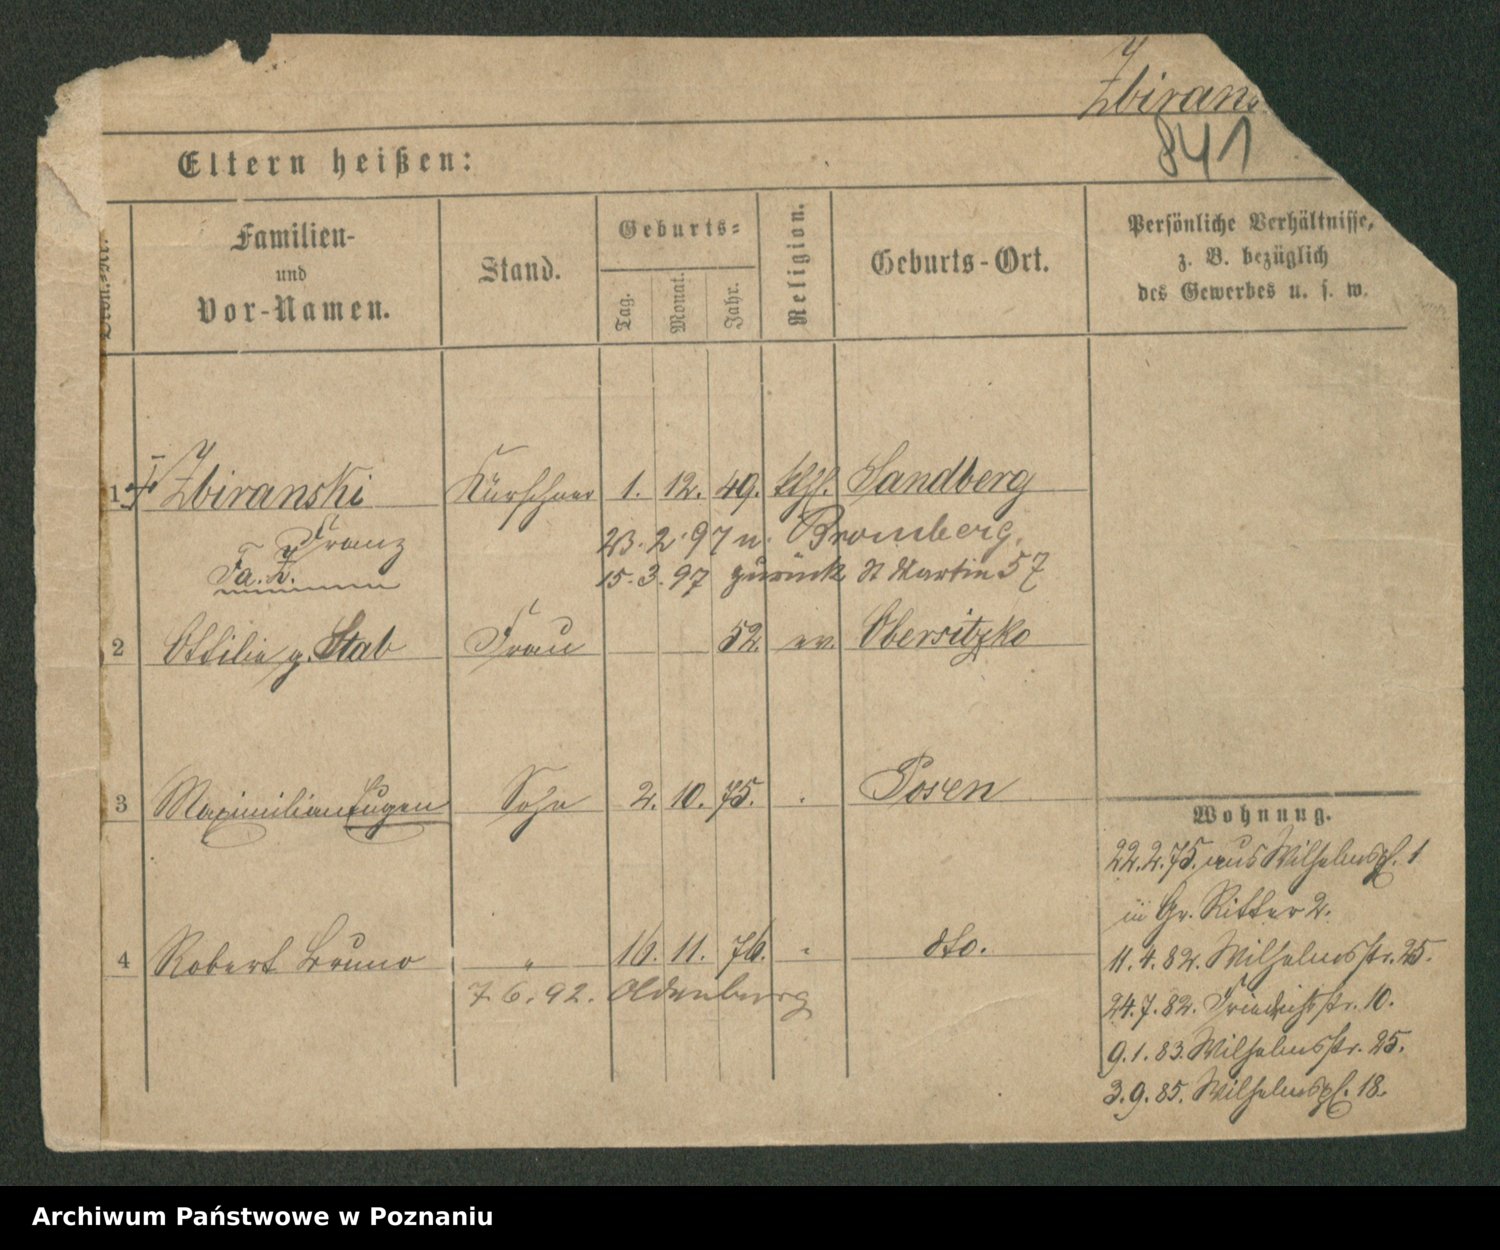 Zbirans
841
Eltern heißen:
Familien-
und
Vor-Namen.
Stand.
Geburts-
Tag.
Monat.
Jahr.
Religion.
Geburts-Ort.
Persönliche Verhältnisse,
z. B. bezüglich
des Gewerbes u. s. w.
1 Zbiranski Kürschner 1. 12. 49. kth. Sandberg
Franz 23. 2. 97 n. Bromberg.
Fa. Z. 15. 3. 97 zurück St Martin 57
2 Ottilie g. Stab Frau 52. ev. Obersitzko
3 Maximilian Eugen Sohn 2. 10. 75. . Posen
4 Robert Bruno " 16. 11. 76. " dto.
7. 6. 92. Oldenburg
Wohnung.
22. 2. 75. aus Wilhelmspl. 1
in Gr. Ritter 2.
11. 4. 82. Wilhelmsstr. 25.
24. 7. 82. Friedrichsstr. 10.
9. 1. 83. Wilhelmsstr. 25.
3. 9. 85. Wilhelmspl. 18.
Archiwum Państwowe w Poznaniu